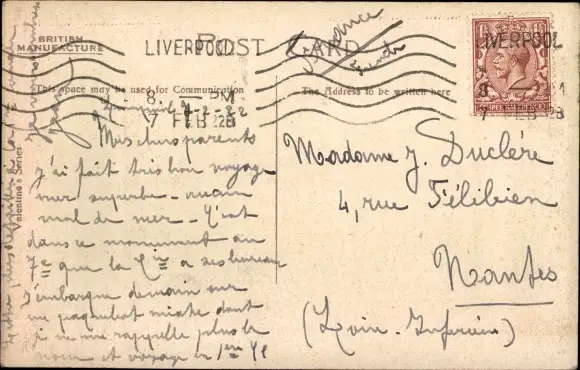 BRITISH
MANUFACTURE
POST CARD
LIVERPOOL
LIVERPOOL
8 — PM
7 FEB 22B
7 FEB 22B
France
This space may be used for Communication
The Address to be written here
Valentine's Series
Liverpool 7-2-22
Mes chers parents
J'ai fait très bon voyage
mer superbe - aucun
mal de mer - C'est
dans ce monument au
7e que la Cie a ses bureaux
J'embarque demain sur
un paquebot mixte dont
je ne me rappelle plus le
nom et voyage en 1ère Cl
Madame J. Duclére
4, rue Félibien
Nantes
(Loire-Inférieure)